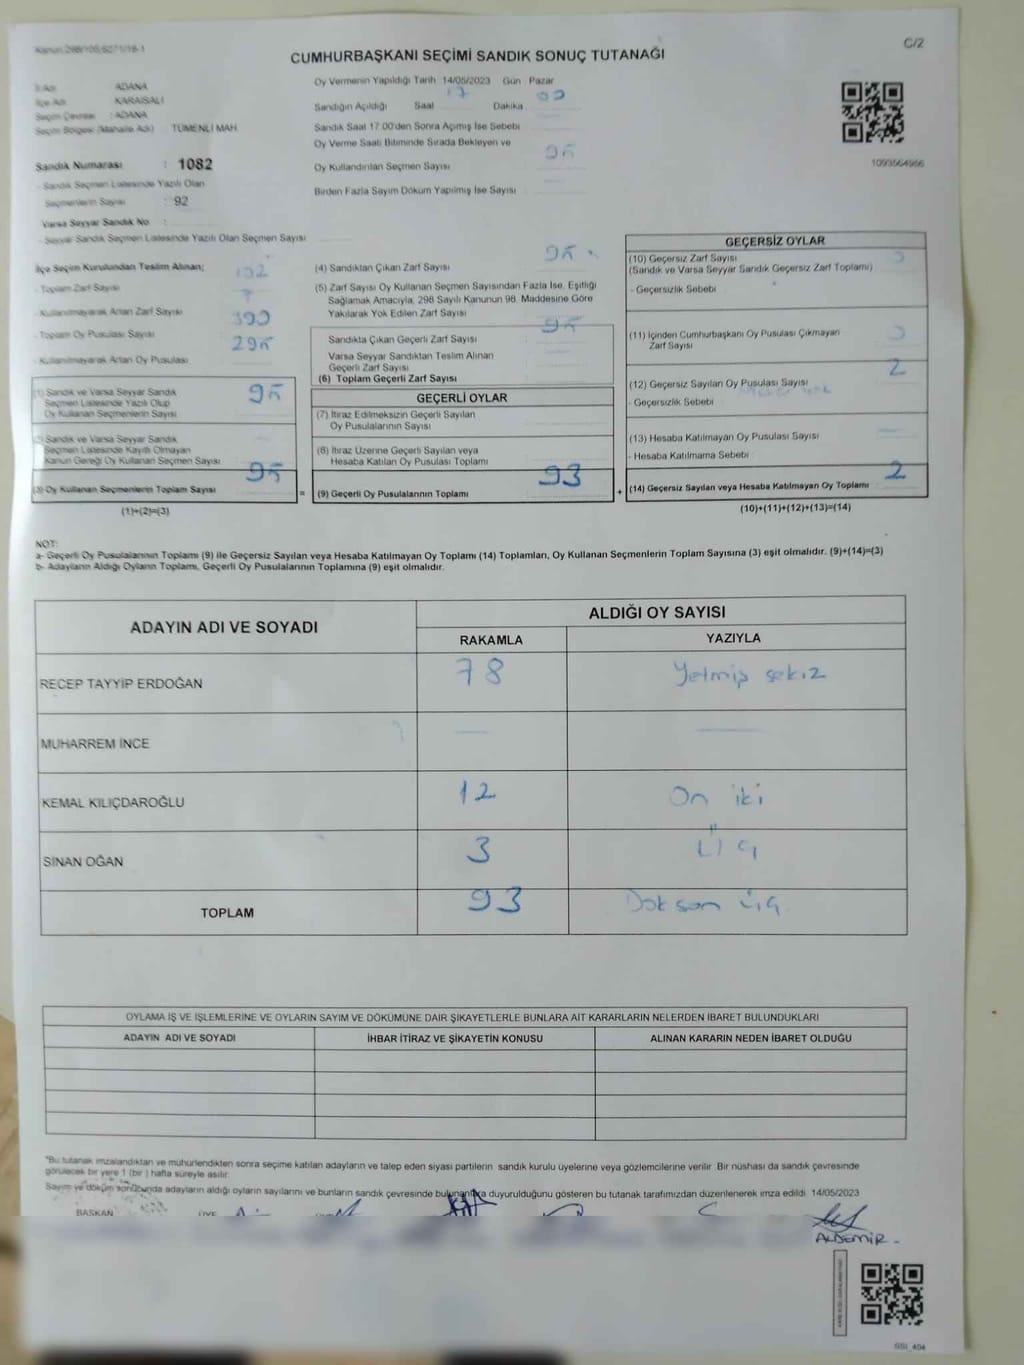 Kanun:298/105,6271/18-1
C/2
CUMHURBAŞKANI SEÇİMİ SANDIK SONUÇ TUTANAĞI
İl Adı : ADANA
İlçe Adı : KARAİSALI
Seçim Çevresi : ADANA
Seçim Bölgesi (Mahalle Adı) TÜMENLİ MAH.
Sandık Numarası : 1082
- Sandık Seçmen Listesinde Yazılı Olan
Seçmenlerin Sayısı : 92
Varsa Seyyar Sandık No :
- Seyyar Sandık Seçmen Listesinde Yazılı Olan Seçmen Sayısı
Oy Vermenin Yapıldığı Tarih 14/05/2023 Gün Pazar
Sandığın Açıldığı Saat 17 Dakika 00
Sandık Saat 17.00'den Sonra Açılmış İse Sebebi
Oy Verme Saati Bitiminde Sırada Bekleyen ve
Oy Kullandırılan Seçmen Sayısı 95
Birden Fazla Sayım Döküm Yapılmış İse Sayısı
1093564966
İlçe Seçim Kurulundan Teslim Alınan;
- Toplam Zarf Sayısı 102
- Kullanılmayarak Artan Zarf Sayısı 7
- Toplam Oy Pusulası Sayısı 390
- Kullanılmayarak Artan Oy Pusulası 295
(1) Sandık ve Varsa Seyyar Sandık
Seçmen Listesinde Yazılı Olup
Oy Kullanan Seçmenlerin Sayısı 95
(2) Sandık ve Varsa Seyyar Sandık
Seçmen Listesinde Kayıtlı Olmayan
Kanun Gereği Oy Kullanan Seçmen Sayısı
(3) Oy Kullanan Seçmenlerin Toplam Sayısı 95
(1)+(2)=(3)
(4) Sandıktan Çıkan Zarf Sayısı 95
(5) Zarf Sayısı Oy Kullanan Seçmen Sayısından Fazla İse, Eşitliği
Sağlamak Amacıyla, 298 Sayılı Kanunun 98. Maddesine Göre
Yakılarak Yok Edilen Zarf Sayısı
Sandıkta Çıkan Geçerli Zarf Sayısı 95
Varsa Seyyar Sandıktan Teslim Alınan
Geçerli Zarf Sayısı
(6) Toplam Geçerli Zarf Sayısı
GEÇERLİ OYLAR
(7) İtiraz Edilmeksizin Geçerli Sayılan
Oy Pusulalarının Sayısı
(8) İtiraz Üzerine Geçerli Sayılan veya
Hesaba Katılan Oy Pusulası Toplamı
= (9) Geçerli Oy Pusulalarının Toplamı 93
GEÇERSİZ OYLAR
(10) Geçersiz Zarf Sayısı
(Sandık ve Varsa Seyyar Sandık Geçersiz Zarf Toplamı)
- Geçersizlik Sebebi
(11) İçinden Cumhurbaşkanı Oy Pusulası Çıkmayan
Zarf Sayısı
(12) Geçersiz Sayılan Oy Pusulası Sayısı 2
- Geçersizlik Sebebi
(13) Hesaba Katılmayan Oy Pusulası Sayısı
- Hesaba Katılmama Sebebi
+ (14) Geçersiz Sayılan veya Hesaba Katılmayan Oy Toplamı 2
(10)+(11)+(12)+(13)=(14)
NOT:
a- Geçerli Oy Pusulalarının Toplamı (9) ile Geçersiz Sayılan veya Hesaba Katılmayan Oy Toplamı (14) Toplamları, Oy Kullanan Seçmenlerin Toplam Sayısına (3) eşit olmalıdır. (9)+(14)=(3)
b- Adayların Aldığı Oyların Toplamı, Geçerli Oy Pusulalarının Toplamına (9) eşit olmalıdır.
ADAYIN ADI VE SOYADI ALDIĞI OY SAYISI
RAKAMLA YAZIYLA
RECEP TAYYİP ERDOĞAN 78 Yetmiş sekiz
MUHARREM İNCE
KEMAL KILIÇDAROĞLU 12 On iki
SİNAN OĞAN 3 Üç
TOPLAM 93 Doksan üç
OYLAMA İŞ VE İŞLEMLERİNE VE OYLARIN SAYIM VE DÖKÜMÜNE DAİR ŞİKAYETLERLE BUNLARA AİT KARARLARIN NELERDEN İBARET BULUNDUKLARI
ADAYIN ADI VE SOYADI İHBAR İTİRAZ VE ŞİKAYETİN KONUSU ALINAN KARARIN NEDEN İBARET OLDUĞU
*Bu tutanak imzalandıktan ve mühürlendikten sonra seçime katılan adayların ve talep eden siyasi partilerin sandık kurulu üyelerine veya gözlemcilerine verilir. Bir nüshası da sandık çevresinde
görülecek bir yere 1 (bir ) hafta süreyle asılır.
Sayım ve döküm sonucunda adayların aldığı oyların sayılarını ve bunların sandık çevresinde bulunanlara duyurulduğunu gösteren bu tutanak tarafımızdan düzenlenerek imza edildi. 14/05/2023
BAŞKAN ÜYE